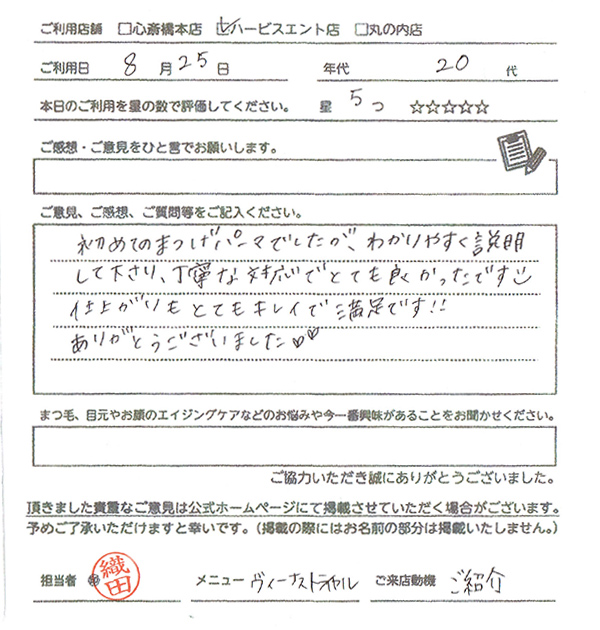 ご利用店舗 □心斎橋本店 ☑ハービスエント店 □丸の内店
ご利用日 8月25日 年代 20代
本日のご利用を星の数で評価してください。 星 5つ ☆☆☆☆☆
ご感想・ご意見をひと言でお願いします。
ご意見、ご感想、ご質問等をご記入ください。
初めてのまつげパーマでしたが、わかりやすく説明
して下さり、丁寧な対応でとても良かったです
仕上がりもとてもキレイで満足です!!
ありがとうございました♡♡
まつ毛、目元やお顔のエイジングケアなどのお悩みや今一番興味があることをお聞かせください。
ご協力いただき誠にありがとうございました。
頂きました貴重なご意見は公式ホームページにて掲載させていただく場合がございます。
予めご了承いただけますと幸いです。(掲載の際にはお名前の部分は掲載いたしません。)
担当者 ㊞ 織田 メニュー ヴィーナストライヤル ご来店動機 ご紹介